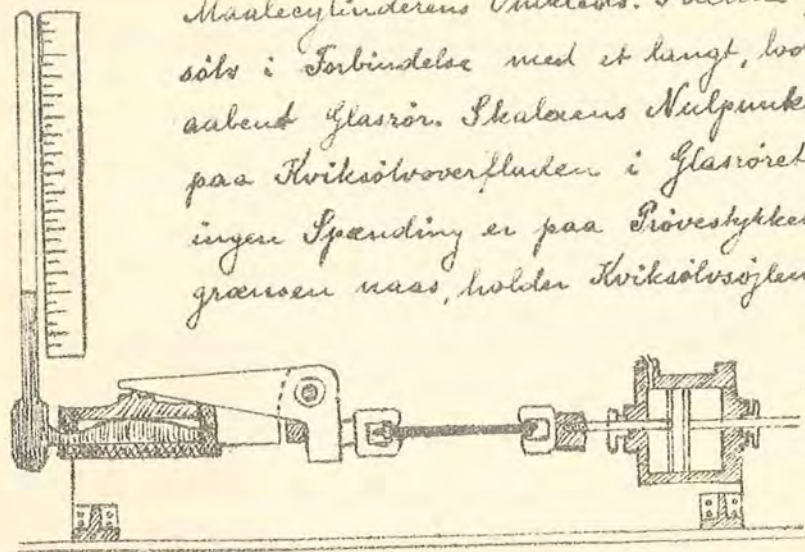 Maalecylinderens
sölv i Forbindelse med et langt, lod
aabent Glasrör. Skalaens Nulpunk
paa Kviksölvoverfladen i Glasröret
ingen Spænding er paa Prövestykke
grænsen naas, holder Kviksölvsöjlen